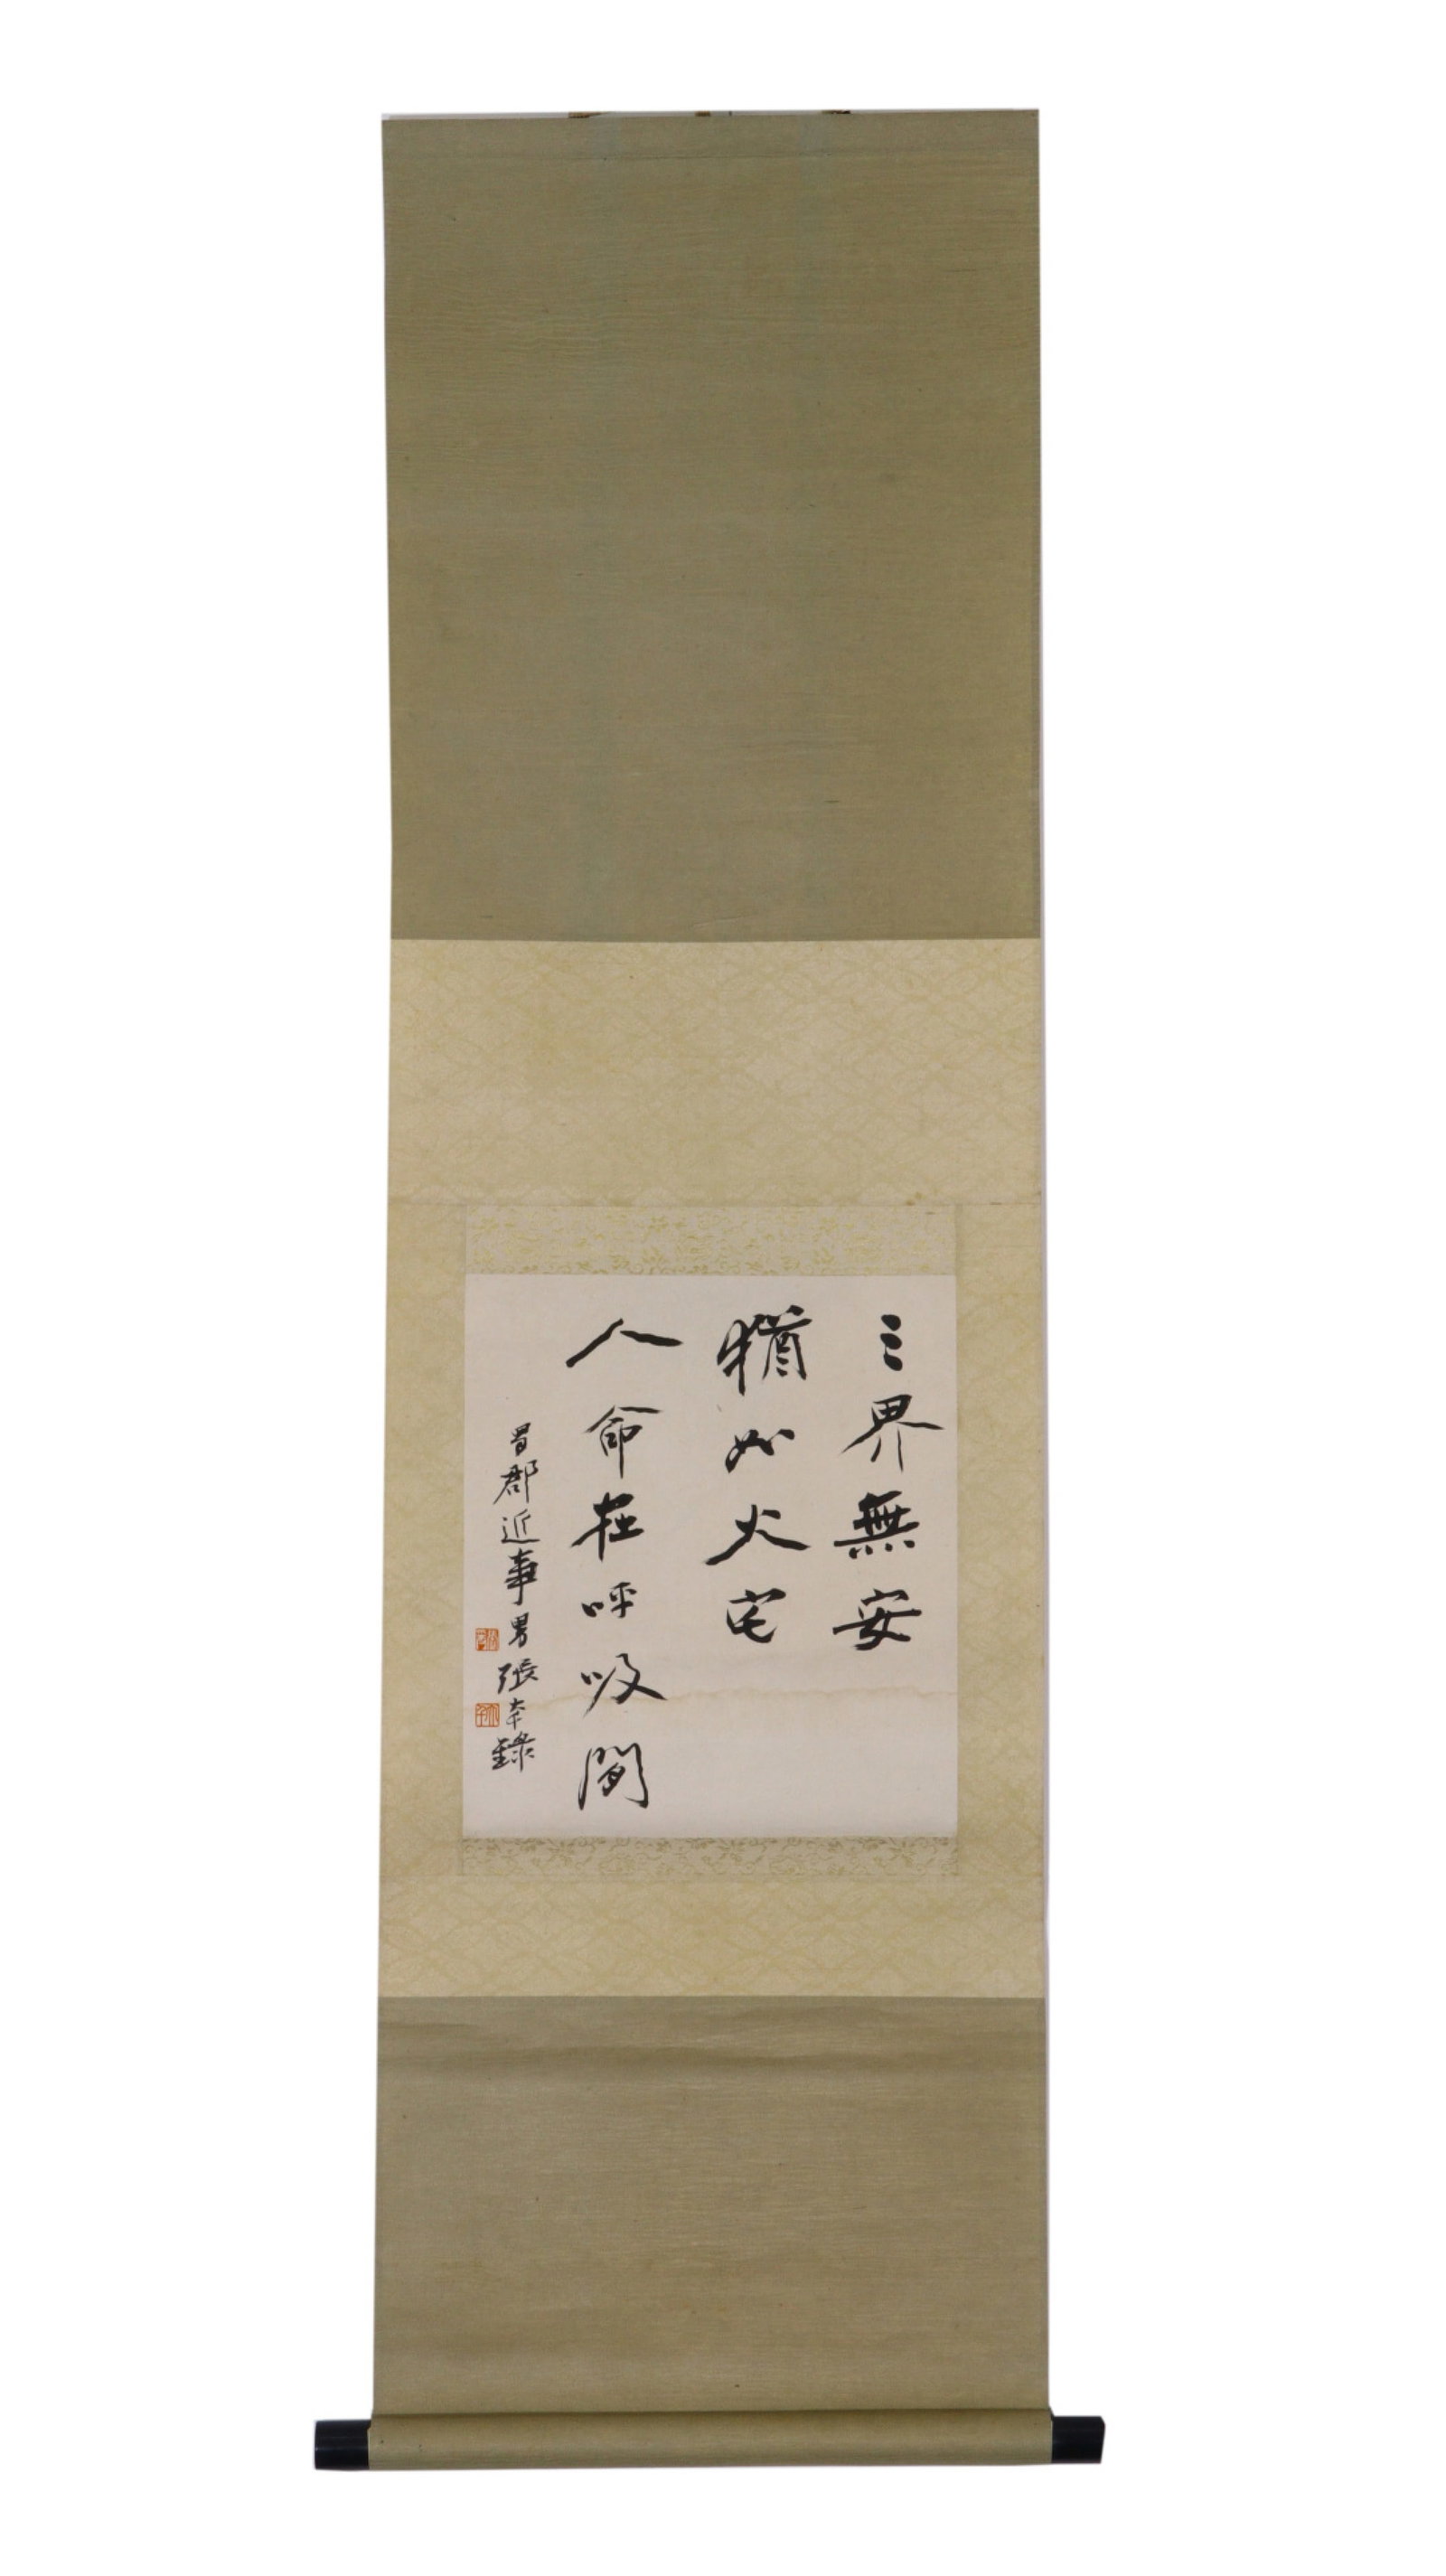 三界無安
猶如火宅
人命在呼吸間
蜀郡近事男張大千錄